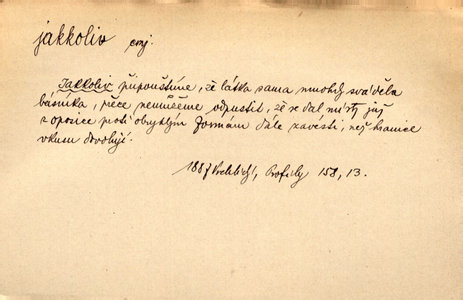 jakkoliv conj.
Jakkoliv připouštíme, že látka sama mnohdy sváděla
básníka, přece nemůžeme odpustit, že se dal místy již
z oposice proti obvyklým formám dále zavésti, než hranice
vkusu dovolují.
1887 Vrchlický, Profily 158, 13.